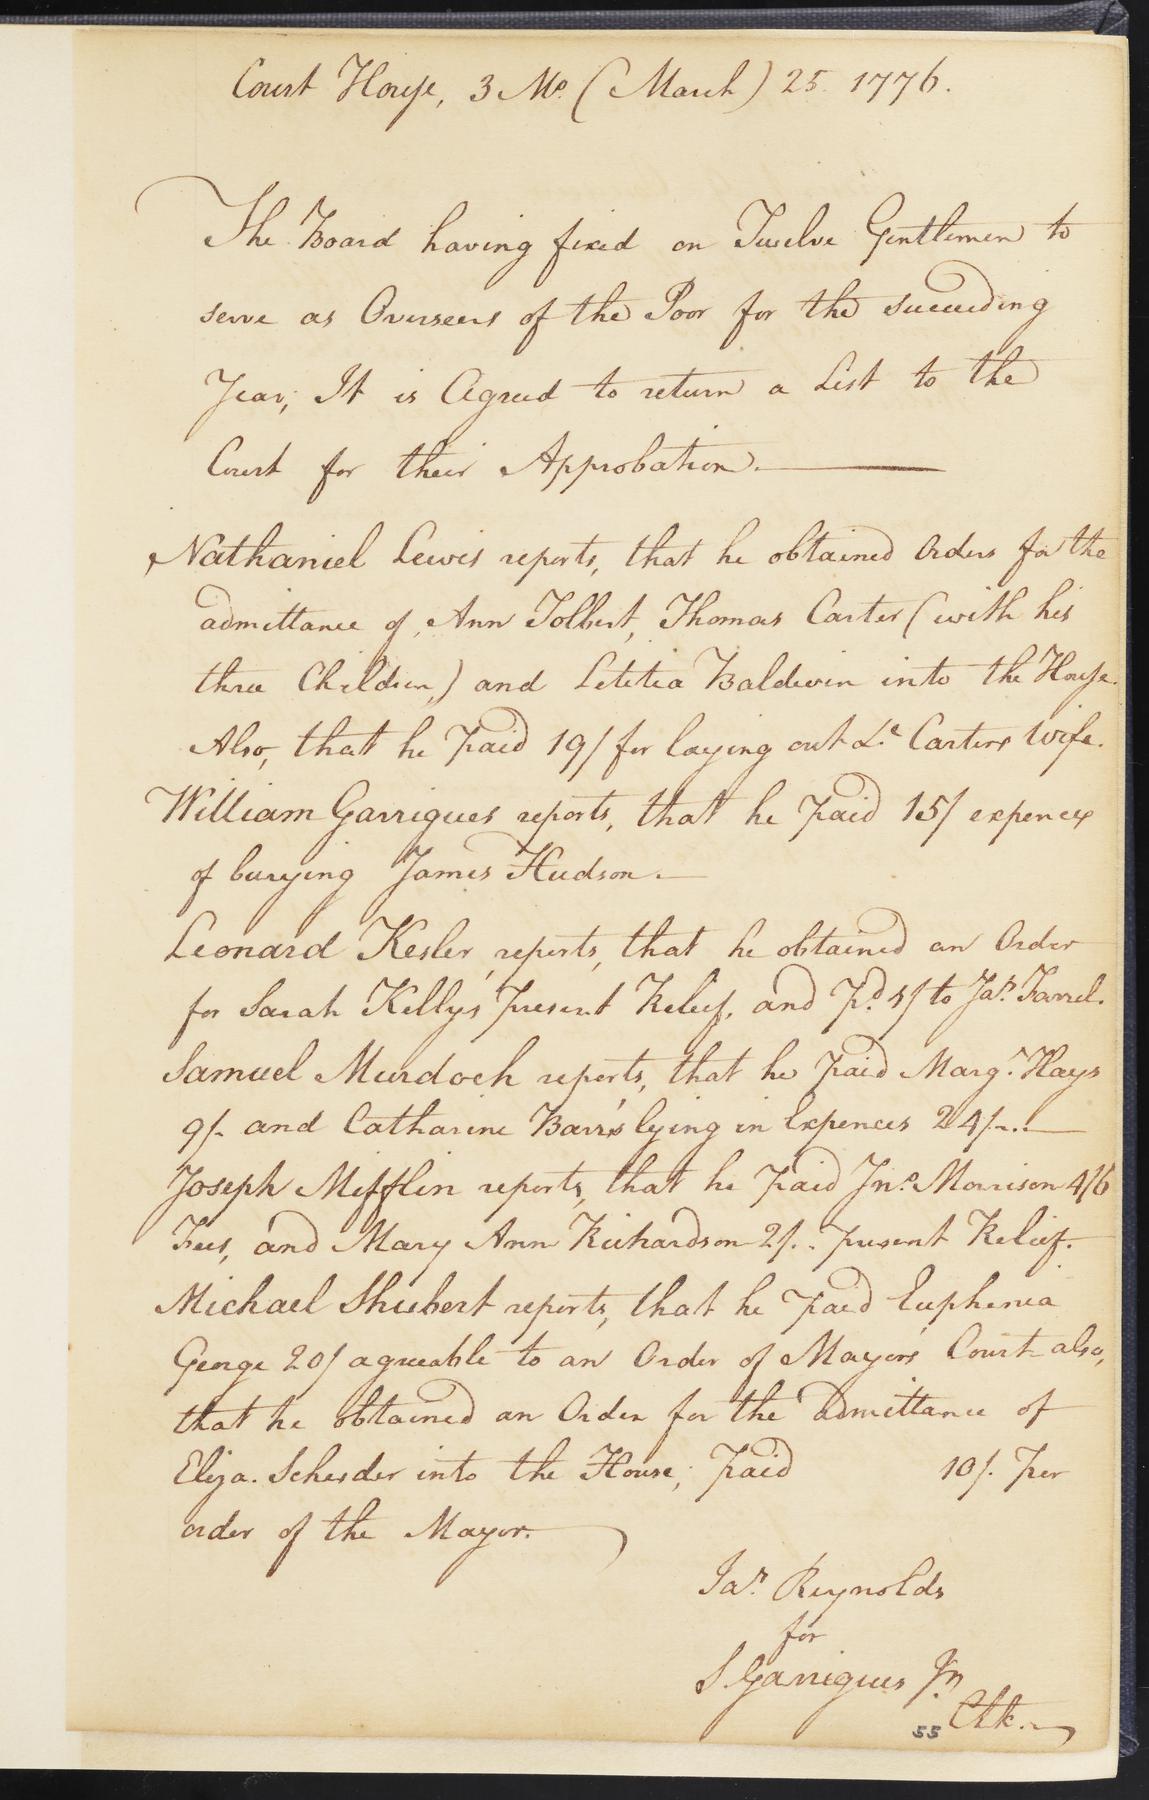 Court House, 3 Mo. (March) 25. 1776.
The Board having fixed on Twelve Gentlemen to
serve as Overseers of the Poor for the succeeding
Year; It is Agreed to return a List to the
Court for their Approbation.
Nathaniel Lewis reports, that he obtained Orders for the
admittance of, Ann Tolbert, Thomas Carter (with his
three Children,) and Letitia Baldwin into the House.
Also, that he paid 19/ for laying out Carters Wife.
William Garrigues reports, that he paid 15/ expences
of burying James Hudson.
Leonard Kesler, reports, that he obtained an Order
for Sarah Kellys present Relief, and pd. 5/ to Jas. Farrel.
Samuel Murdoch reports, that he paid Margt. Hays
9/- and Catharine Barrs lying in Expences 24/-..
Joseph Mifflin reports, that he paid Jno. Morrison 4/6
Fees, and Mary Ann Richardson 2/.. present Relief.
Michael Shubert reports, that he paid Euphemia
George 20/ agreeable to an Order of Mayors Court also,
that he obtained an Order for the admittance of
Eliza. Scheider into the House; paid 10/. per
order of the Mayor.
Jas. Reynolds
for
S. Garrigues Jn.
Clk.
55